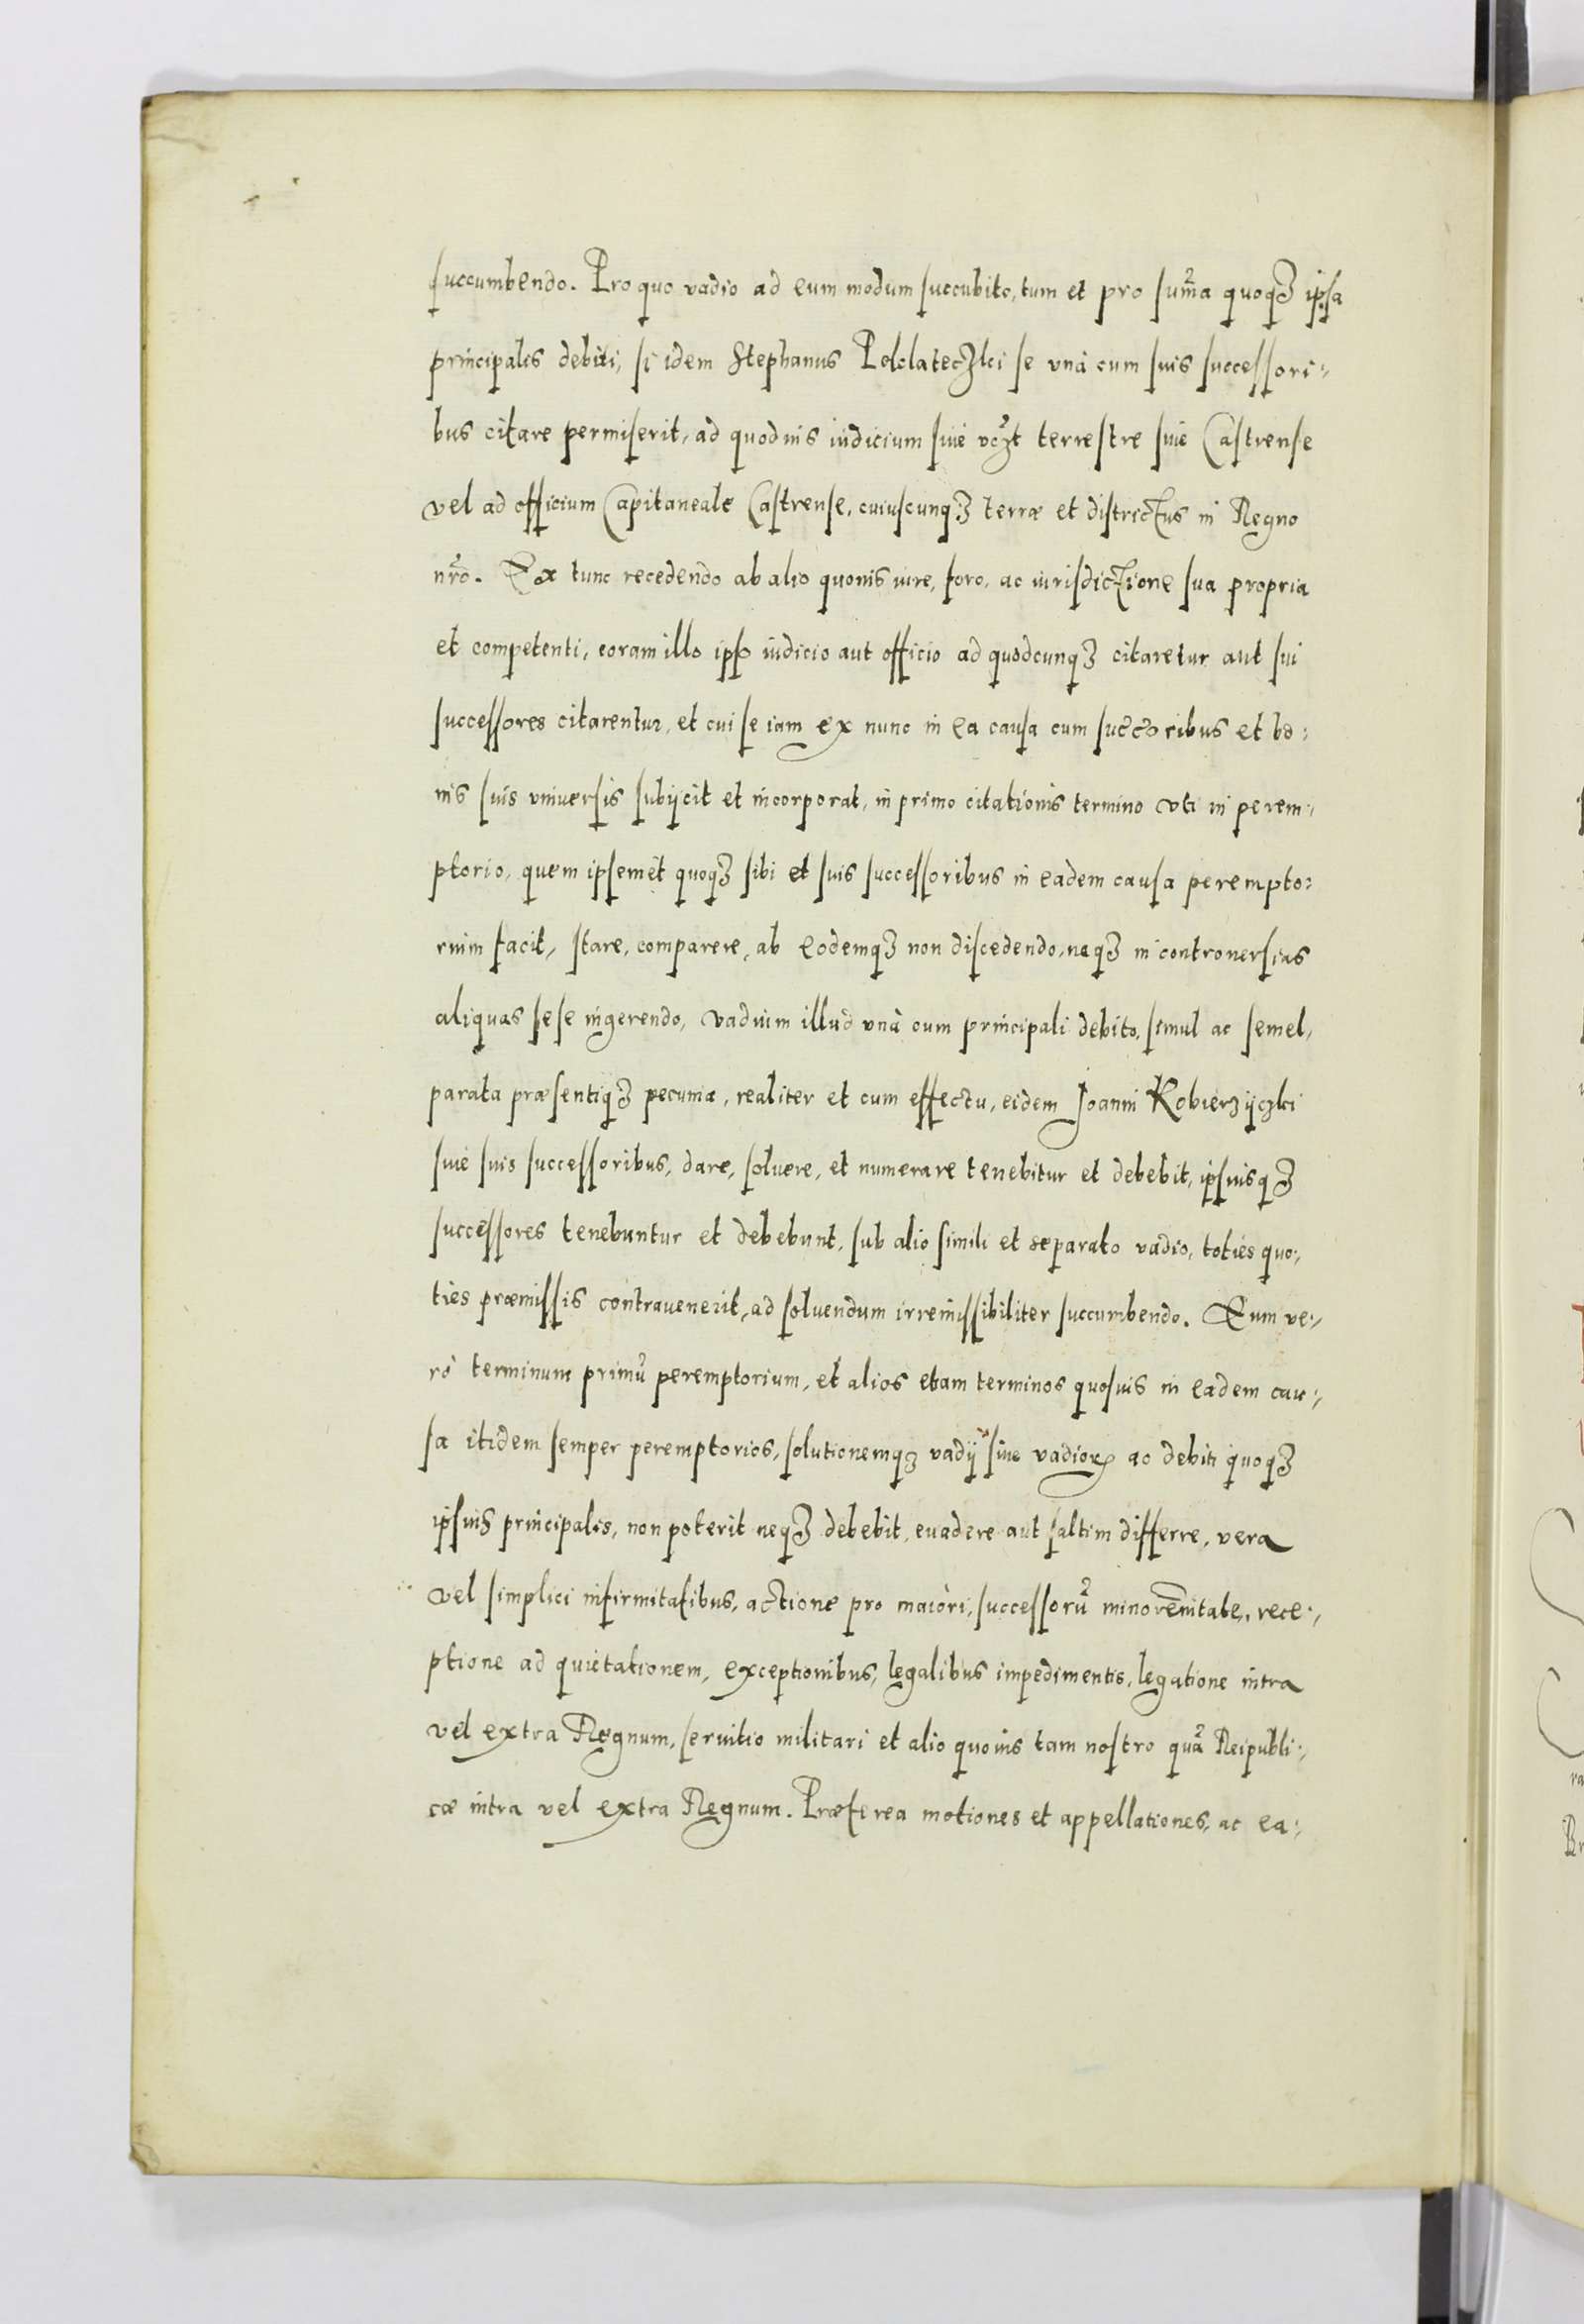 succumbendo. Pro quo vadio ad eum modum succubito, tum et pro sum̃a quoqꝫ ipsa
principalis debiti, si idem Stephanus Poklateczki se vnà cum suis successori:
bus citare permiserit, ad quoduis iudicium siue vcꝫt terrestre siue Castrense
vel ad officium Capitaneale Castrense, cuiuscunqꝫ terræ et districtus in Regno
nr̃o. Ex tunc recedendo ab alio quouis iure, foro, ac iurisdictione sua propria
et competenti, coram illo ipso iudicio aut officio ad quodcunqꝫ citaretur aut sui
successores citarentur, et cui se iam ex nunc in ea causa cum succ̃oribus et bo:
nis suis vniuersis subijcit et incorporat, in primo citationis termino vti in perem:
ptorio, quem ipsemet quoqꝫ sibi et suis successoribus in eadem causa perempto:
rium facit, stare, comparere, ab eodemqꝫ non discedendo, neqꝫ in controuersias
aliquas sese ingerendo, vadium illud vnà cum principali debito, simul ac semel,
parata præsentiqꝫ pecunia, realiter et cum effectu, eidem Joanni Kobierzyczki
siue suis successoribus, dare, soluere, et numerare tenebitur et debebit, ipsiusqꝫ
successores tenebuntur et debebunt, sub alio simili et separato vadio, toties quo:
ties præmissis contrauenerit, ad soluendum irremissibiliter succumbendo. Eum ve:
rò terminum primũ peremptorium, et alios etiam terminos quosuis in eadem cau:
sa itidem semper peremptorios, solutionemqꝫ vadij siue vadioꝝ ac debiti quoqꝫ
ipsius principalis, non poterit neqꝫ debebit, euadere aut saltim differre, vera
vel simplici infirmitatibus, actione pro maiori, successorũ minorẽnitate, rece:
ptione ad quietationem, exceptionibus, legalibus impedimentis, legatione intra
vel extra Regnum, seruitio militari et alio quouis tam nostro quã Reipubli:
cæ intra vel extra Regnum. Præterea motiones et appellationes, ac ea: